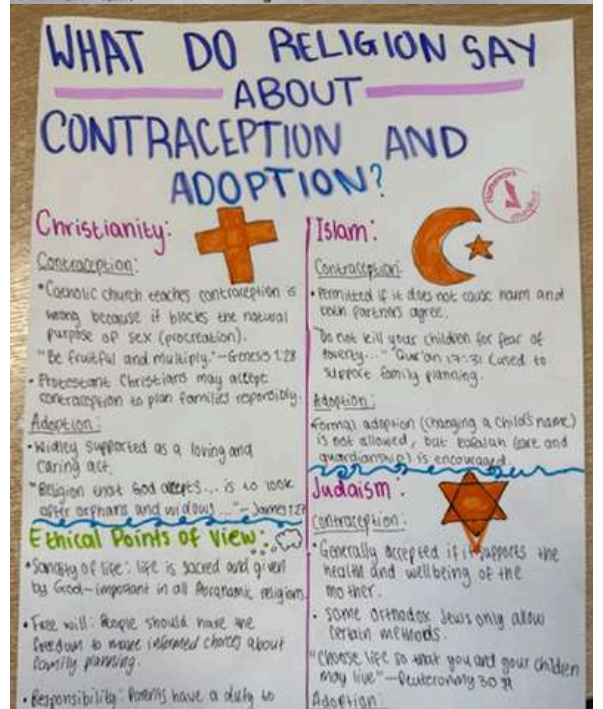 WHAT DO RELIGION SAY
ABOUT
CONTRACEPTION AND
ADOPTION?
Christianity:
Contraception:
•Catholic church teaches contraception is
wrong because if blocks the natural
purpose of sex (procreation).
"Be fruitful and multiply."-Genesis 1:28
• Protestant Christians may accept
contraception to plan families reponsibly.
Adoption:
•Widley supported as a loving and
caring act.
"Religion that God accepts... is to look
after orphans and widows..."- James 1:27
Ethical Points of View:
•Sanctity of life: life is sacred and given
by God-important in all Abranamic religion
• Free will: People should have the
freedom to make informed choices about
family planning.
• Responsibility: Parents have a duty to
Homework
Islam:
Contraception:
•Permitted if it does not cause harm and
both partners agree.
"Do not kill your children for fear of
poverty..." Qur'an 17:31 (used to
support family planning.
Adoption:
Formal adoption (changing a child's name)
is not allowed, but kafalah (care and
guardianship) is encouraged.
Judaism:
Contraception:
•Generally accepted if it supports the
health and wellbeing of the
mother.
• Some Orthodox Jews only allow
certain methods.
"Choose life so that you and your children
may live"-Deuteronomy 30
Adoption: